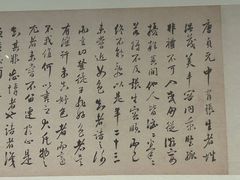 唐貞元中有張生者性
溫茂美丰容內秉堅孤
非禮不可入或朋從游宴
擾雜其間他人皆洶洶拳
若將不及張生容順而已
終不能亂以是年二十三
未嘗近女色知者詰之謝
而言曰登徒子非好色者是
有凶行余真好色者而適
不我值何以言之大凡物之
尤者未嘗不留連於心是
知其非忘情者也詰者識